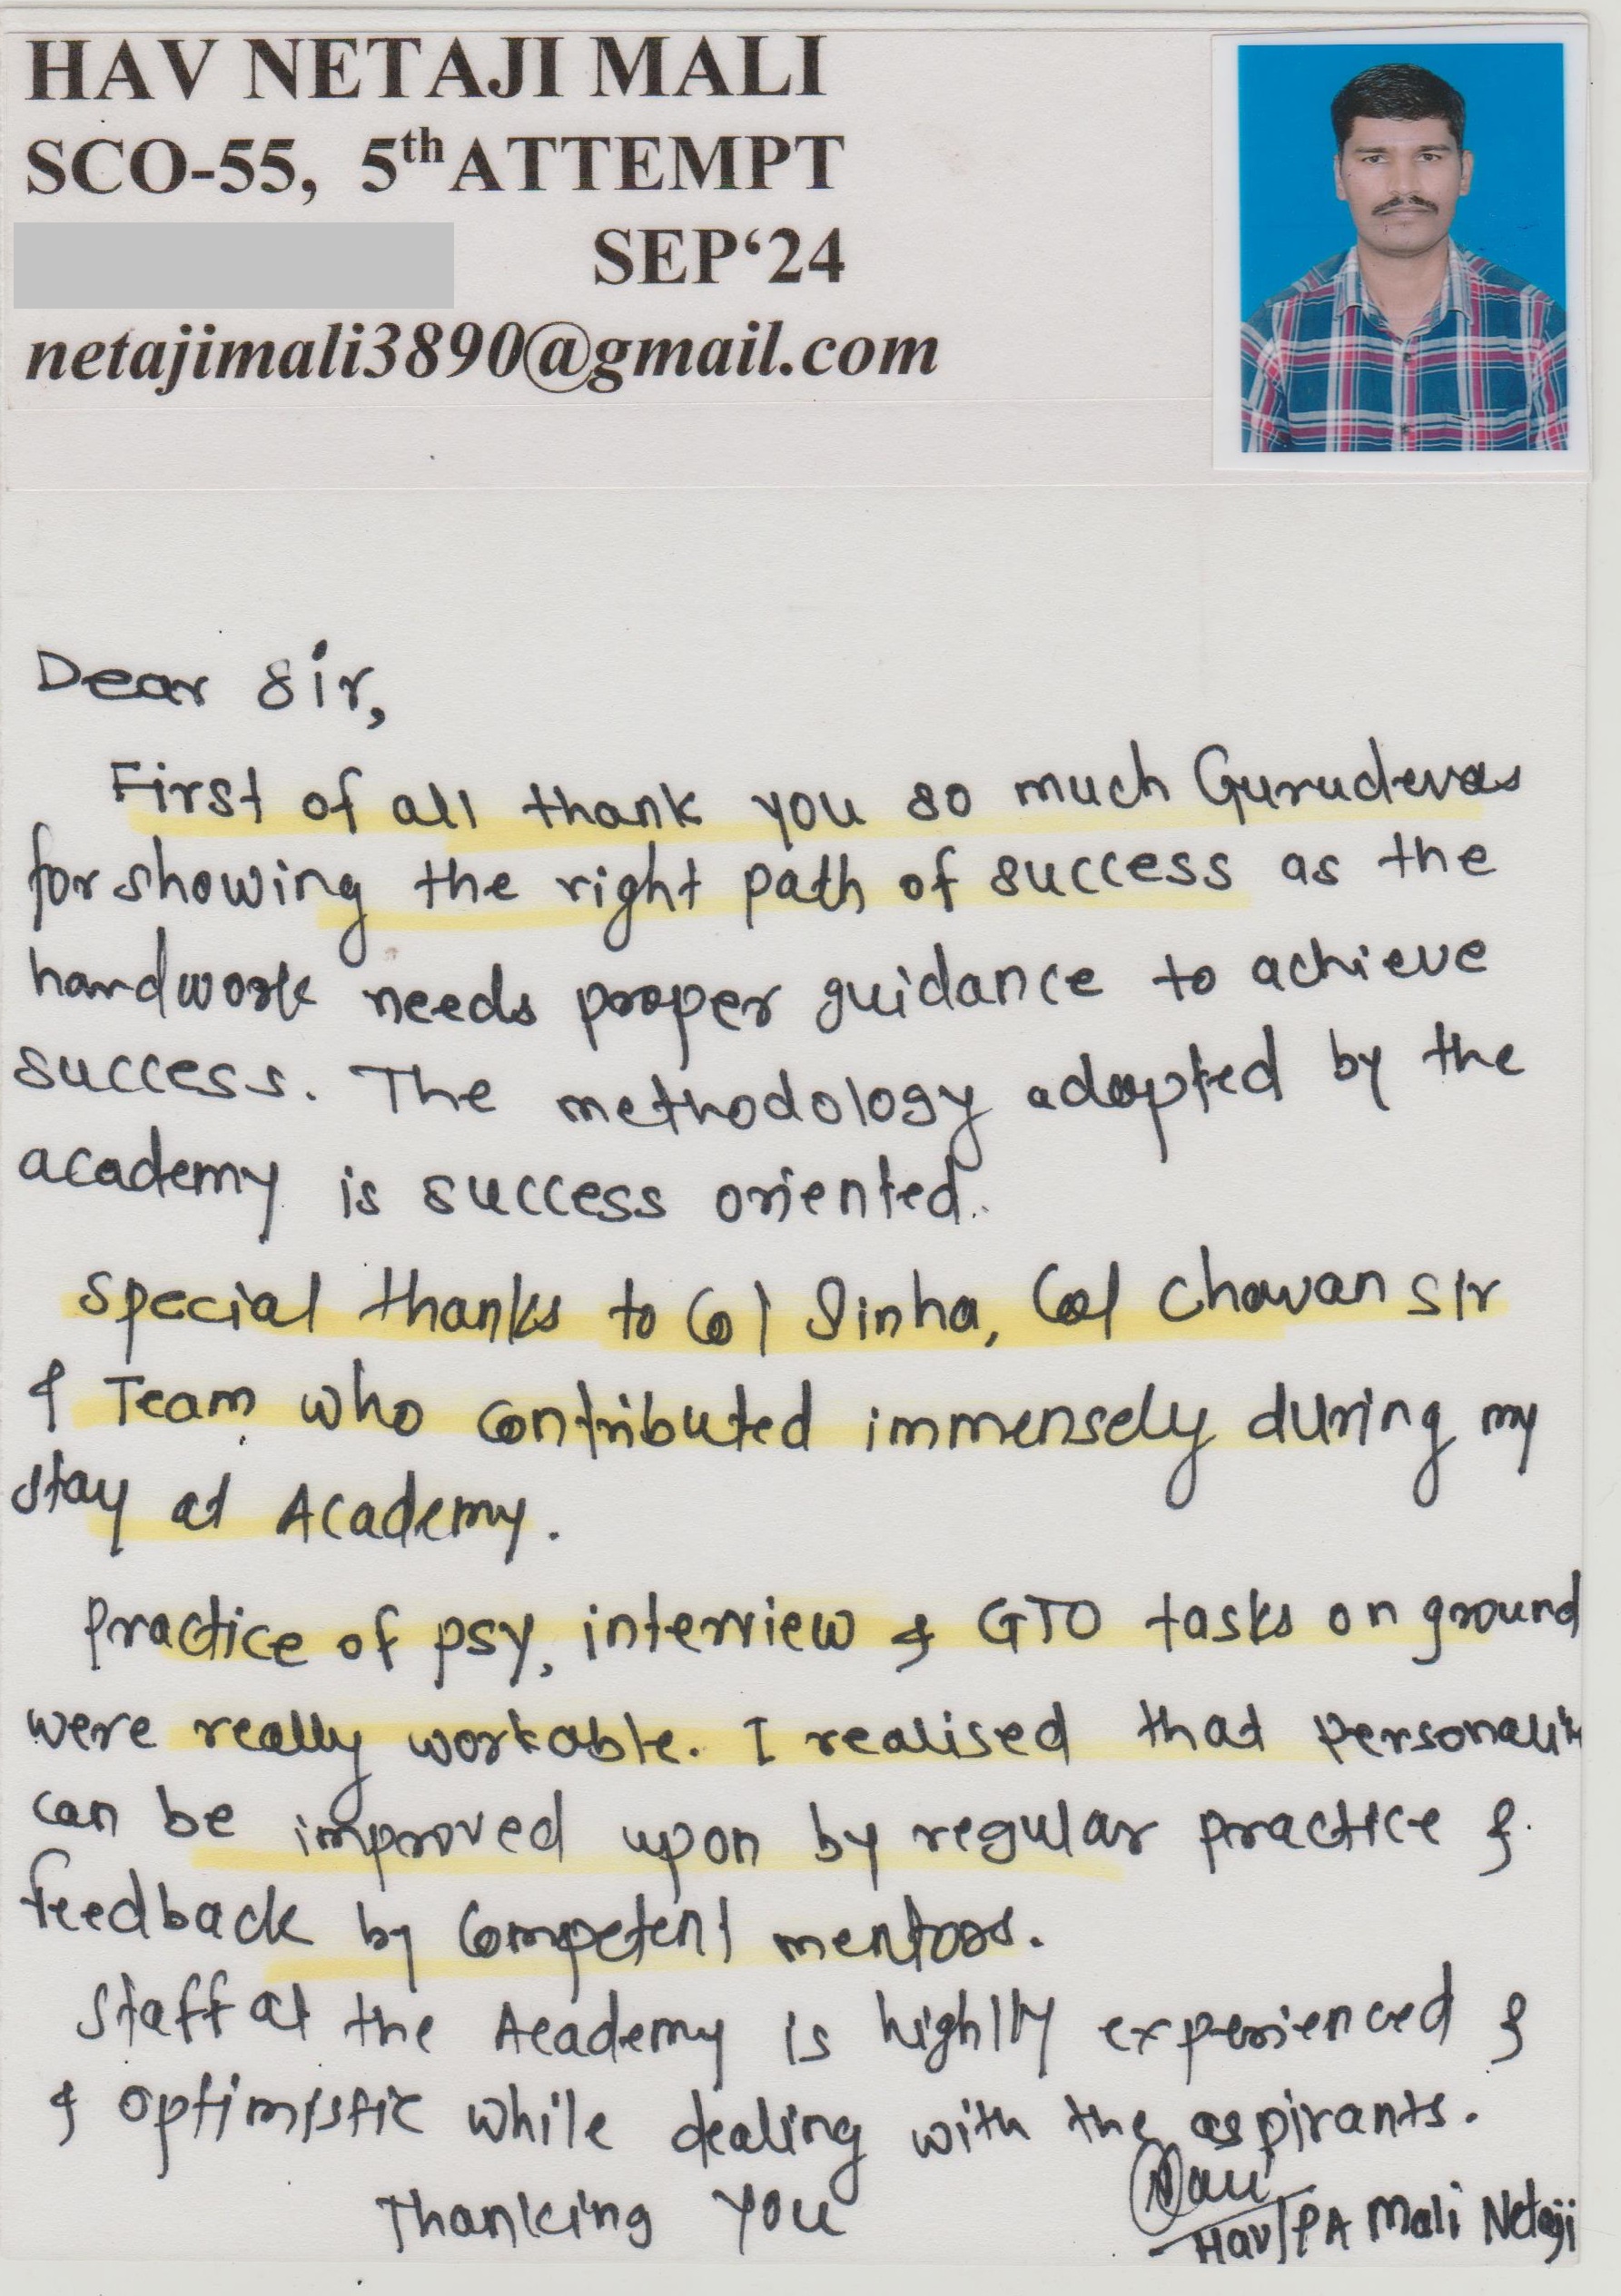 HAV NETAJI MALI
SCO-55, 5th ATTEMPT
SEP‘24
netajimali3890@gmail.com
Dear Sir,
First of all thank you so much Gurudevas
for showing the right path of success as the
hardwork needs proper guidance to achieve
success. The methodology adopted by the
academy is success oriented.
Special thanks to Col Sinha, Col Chavan Sir
& Team who contributed immensely during my
stay at Academy.
Practice of psy, interview & GTO tasks on ground
were really workable. I realised that personalit
can be improved upon by regular practice &
feedback by competent mentors.
Staff at the Academy is highlly experienced &
& optimistic while dealing with the aspirants.
Thanking You
Hav/PA Mali Netaji